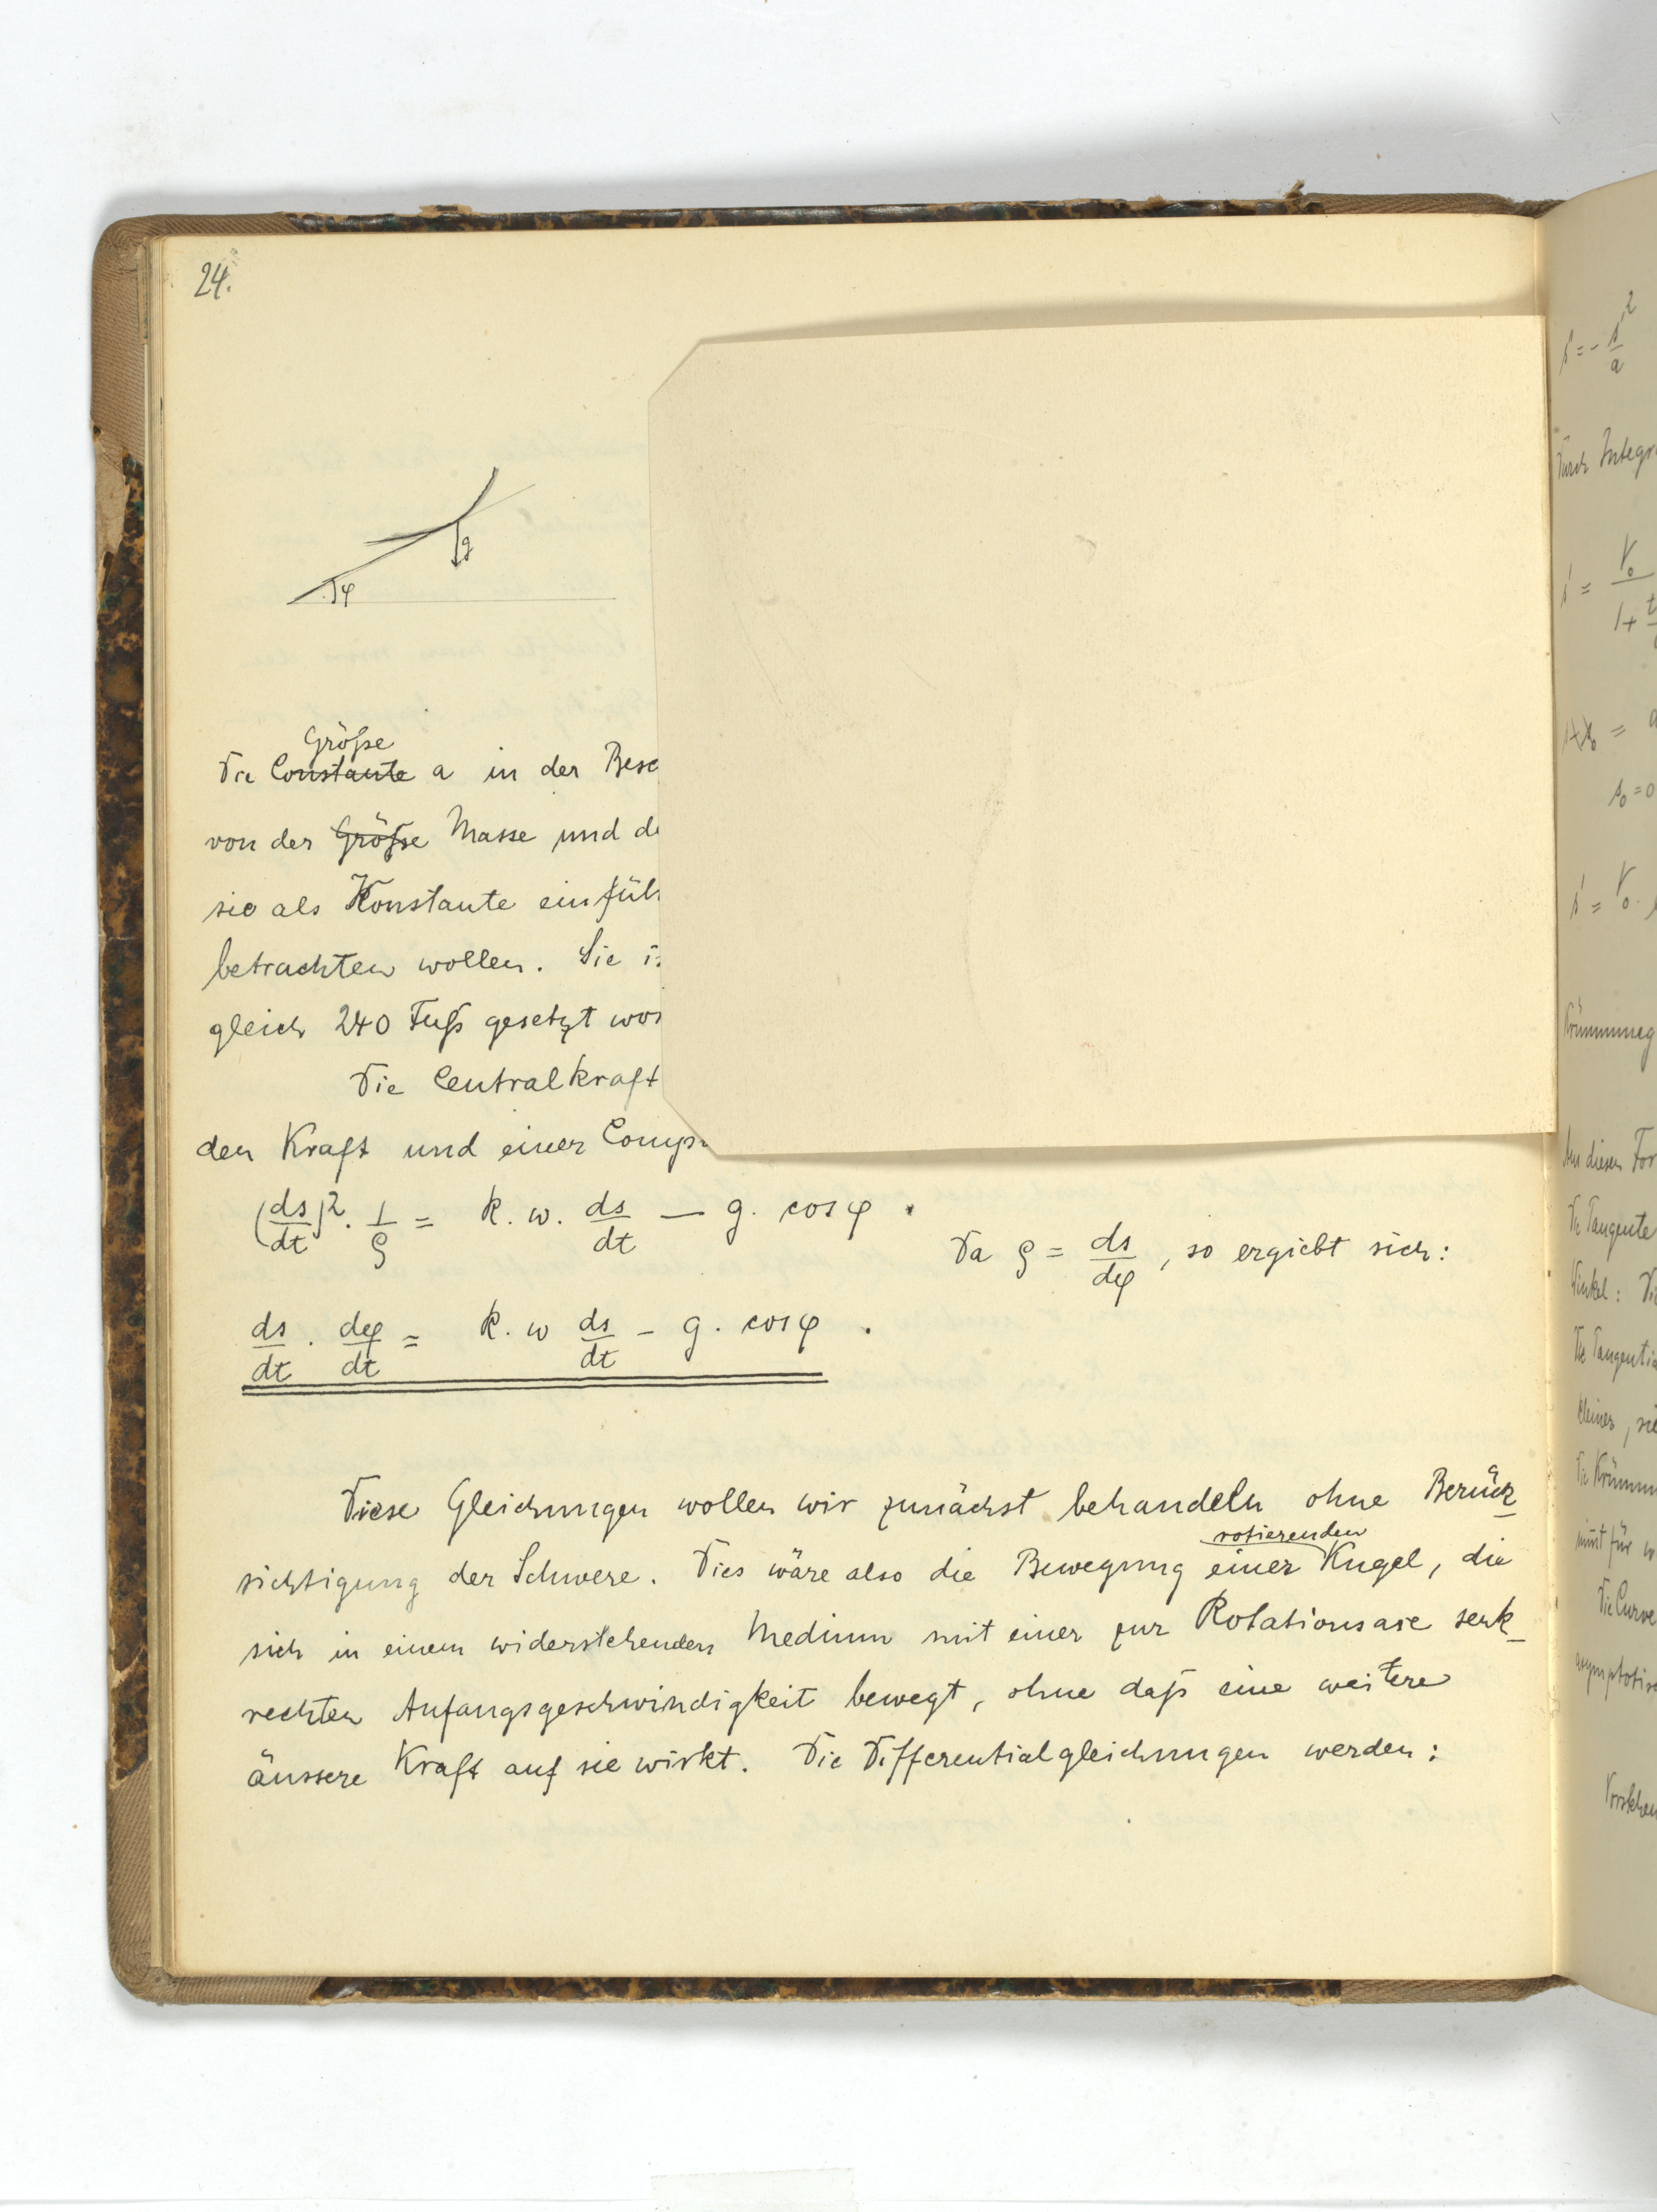 24.
g
φ
Größe
Die Constante a in der Besc
von der Größe Masse und de
sie als Konstante einfüh
betrachten wollen. Sie is
gleich 240 Fuß gesetzt wor
Die Centralkraft
den Kraft und einer Compo
(ds/dt)². 1/ρ = k. w. ds/dt — g. cos φ.
Da ρ = ds/dφ, so ergiebt sich:
ds/dt . dφ/dt = k. w ds/dt - g. cos φ.
Diese Gleichungen wollen wir zunächst behandeln ohne Berück-
rotierenden
sichtigung der Schwere. Dies wäre also die Bewegung einer Kugel, die
sich in einem widerstehenden Medium mit einer zur Rotationsaxe senk-
rechten Anfangsgeschwindigkeit bewegt, ohne daß eine weitere
äussere Kraft auf sie wirkt. Die Differentialgleichungen werden:
Durch Integr
s₀ = 0
Krümmung
Aus diesen For
Die Tangente
Winkel: Di
Die Tangentia
kleiner, sie
Die Krümm
nimt für w
Die Curve
asymptotisc